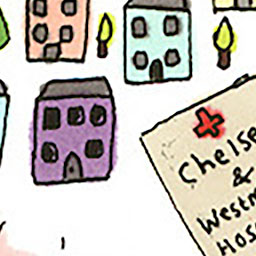 Chelse
&
Westm
Hos